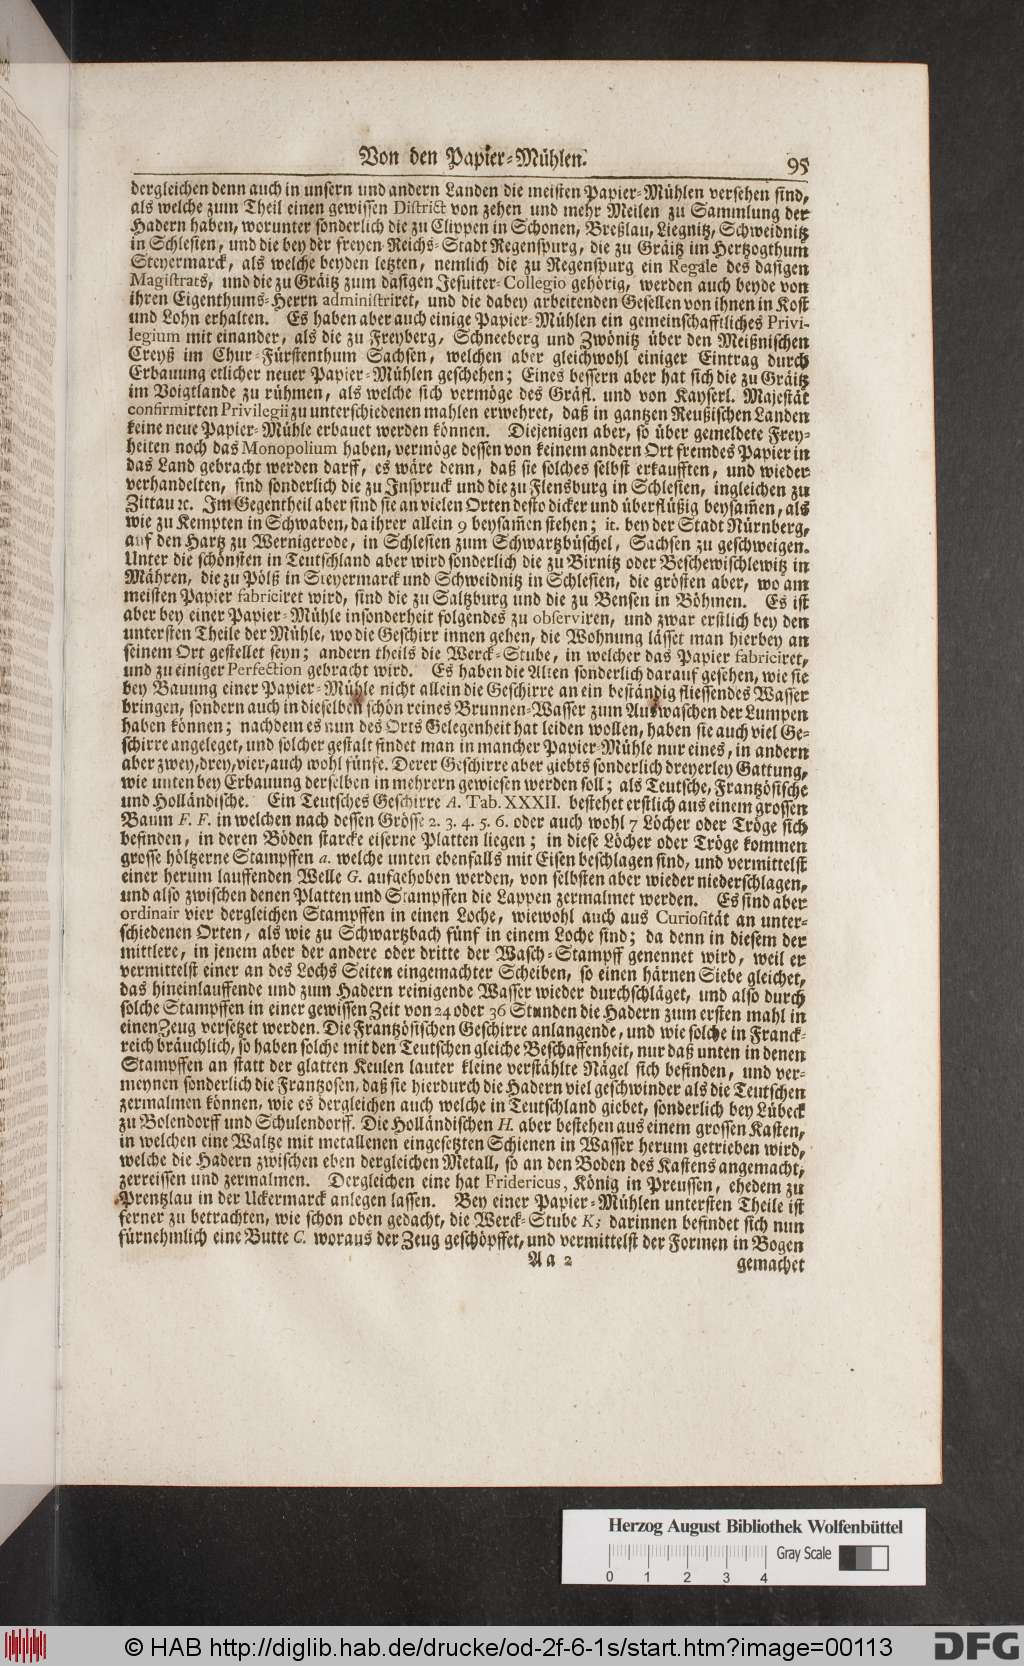 Von den Papier-Mühlen.
95
dergleichen denn auch in unsern und andern Landen die meisten Papier-Mühlen versehen sind,
als welche zum Theil einen gewissen District von zehen und mehr Meilen zu Sammlung der
Hadern haben, worunter sonderlich die zu Clippen in Schonen, Breßlau, Liegnitz, Schweidnitz
in Schlesien, und die bey der freyen Reichs-Stadt Regenspurg, die zu Gräitz im Hertzogthum
Steyermarck, als welche beyden letzten, nemlich die zu Regenspurg ein Regale des dasigen
Magistrats, und die zu Gräitz zum dasigen Jesuiter-Collegio gehörig, werden auch beyde von
ihren Eigenthums-Herrn administriret, und die dabey arbeitenden Gesellen von ihnen in Kost
und Lohn erhalten. Es haben aber auch einige Papier-Mühlen ein gemeinschafftliches Privi-
legium mit einander, als die zu Freyberg, Schneeberg und Zwönitz über den Meißnischen
Creyß im Chur-Fürstenthum Sachsen, welchen aber gleichwohl einiger Eintrag durch
Erbauung etlicher neuer Papier-Mühlen geschehen; Eines bessern aber hat sich die zu Gräitz
im Voigtlande zu rühmen, als welche sich vermöge des Gräfl. und von Kayserl. Majestät
confirmirten Privilegii zu unterschiedenen mahlen erwehret, daß in gantzen Reußischen Landen
keine neue Papier-Mühle erbauet werden können. Diejenigen aber, so über gemeldete Frey-
heiten noch das Monopolium haben, vermöge dessen von keinem andern Ort fremdes Papier in
das Land gebracht werden darff, es wäre denn, daß sie solches selbst erkaufften, und wieder
verhandelten, sind sonderlich die zu Inspruck und die zu Flensburg in Schlesien, ingleichen zu
Zittau ꝛc. Im Gegentheil aber sind sie an vielen Orten desto dicker und überflüßig beysam̃en, als
wie zu Kempten in Schwaben, da ihrer allein 9 beysam̃en stehen; it. bey der Stadt Nürnberg,
auf den Hartz zu Wernigerode, in Schlesien zum Schwartzbüschel, Sachsen zu geschweigen.
Unter die schönsten in Teutschland aber wird sonderlich die zu Birnitz oder Beschewischlewitz in
Mähren, die zu Pölß in Steyermarck und Schweidnitz in Schlesien, die grösten aber, wo am
meisten Papier fabriciret wird, sind die zu Saltzburg und die zu Bensen in Böhmen. Es ist
aber bey einer Papier-Mühle insonderheit folgendes zu observiren, und zwar erstlich bey den
untersten Theile der Mühle, wo die Geschirr innen gehen, die Wohnung lässet man hierbey an
seinem Ort gestellet seyn; andern theils die Werck-Stube, in welcher das Papier fabriciret,
und zu einiger Perfection gebracht wird. Es haben die Alten sonderlich darauf gesehen, wie sie
bey Bauung einer Papier-Mühle nicht allein die Geschirre an ein beständig fliessendes Wasser
bringen, sondern auch in dieselben schön reines Brunnen-Wasser zum Auswaschen der Lumpen
haben können; nachdem es nun des Orts Gelegenheit hat leiden wollen, haben sie auch viel Ge-
schirre angeleget, und solcher gestalt findet man in mancher Papier-Mühle nur eines, in andern
aber zwey, drey, vier, auch wohl fünfe. Derer Geschirre aber giebts sonderlich dreyerley Gattung,
wie unten bey Erbauung derselben in mehrern gewiesen werden soll; als Teutsche, Frantzösische
und Holländische. Ein Teutsches Geschirre A. Tab. XXXII. bestehet erstlich aus einem grossen
Baum F. F. in welchen nach dessen Grösse 2. 3. 4. 5. 6. oder auch wohl 7 Löcher oder Tröge sich
befinden, in deren Böden starcke eiserne Platten liegen; in diese Löcher oder Tröge kommen
grosse höltzerne Stampffen a. welche unten ebenfalls mit Eisen beschlagen sind, und vermittelst
einer herum lauffenden Welle G. aufgehoben werden, von selbsten aber wieder niederschlagen,
und also zwischen denen Platten und Stampffen die Lappen zermalmet werden. Es sind aber
ordinair vier dergleichen Stampffen in einen Loche, wiewohl auch aus Curiosität an unter-
schiedenen Orten, als wie zu Schwartzbach fünf in einem Loche sind; da denn in diesem der
mittlere, in jenem aber der andere oder dritte der Wasch-Stampff genennet wird, weil er
vermittelst einer an des Lochs Seiten eingemachter Scheiben, so einen härnen Siebe gleichet,
das hineinlauffende und zum Hadern reinigende Wasser wieder durchschläget, und also durch
solche Stampffen in einer gewissen Zeit von 24 oder 36 Stunden die Hadern zum ersten mahl in
einen Zeug versetzet werden. Die Frantzösischen Geschirre anlangende, und wie solche in Franck-
reich bräuchlich, so haben solche mit den Teutschen gleiche Beschaffenheit, nur daß unten in denen
Stampffen an statt der glatten Keulen lauter kleine verstählte Nägel sich befinden, und ver-
meynen sonderlich die Frantzosen, daß sie hierdurch die Hadern viel geschwinder als die Teutschen
zermalmen können, wie es dergleichen auch welche in Teutschland giebet, sonderlich bey Lübeck
zu Bolendorff und Schulendorff. Die Holländischen H. aber bestehen aus einem grossen Kasten,
in welchen eine Waltze mit metallenen eingesetzten Schienen in Wasser herum getrieben wird,
welche die Hadern zwischen eben dergleichen Metall, so an den Boden des Kastens angemacht,
zerreissen und zermalmen. Dergleichen eine hat Fridericus, König in Preussen, ehedem zu
Prentzlau in der Uckermarck anlegen lassen. Bey einer Papier-Mühlen untersten Theile ist
ferner zu betrachten, wie schon oben gedacht, die Werck-Stube K; darinnen befindet sich nun
fürnehmlich eine Butte C. woraus der Zeug geschöpffet, und vermittelst der Formen in Bogen
Aa 2
gemachet
Herzog August Bibliothek Wolfenbüttel
Gray Scale
0 1 2 3 4
© HAB http://diglib.hab.de/drucke/od-2f-6-1s/start.htm?image=00113
DFG